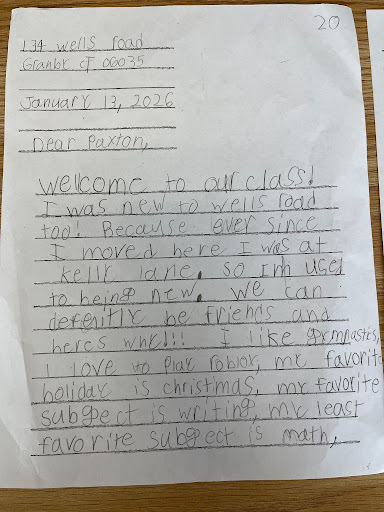 20
134 wells road
Granby CT 06035
January 13, 2026
Dear Paxton,
wellcome to our class!
I was new to wells road
too! Because ever since
I moved here I was at
kelly lane, so I'm used
to being new. We can
defenitly be friends and
heres why!!! I like gymnastics,
I love to play roblox, my favorit
holiday is christmas, my favorite
subgect is writing, my least
favorite subgect is math,